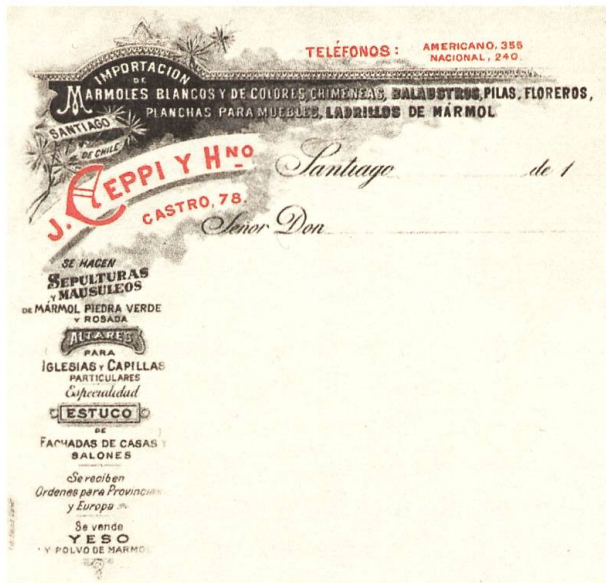 TELÉFONOS: AMERICANO, 355
NACIONAL, 240.
IMPORTACION
DE
MARMOLES BLANCOS Y DE COLORES, CHIMENEAS, BALAUSTROS, PILAS, FLOREROS,
PLANCHAS PARA MUEBLES, LADRILLOS DE MÁRMOL
SANTIAGO
DE CHILE
J. CEPPI Y HNO
CASTRO, 78.
Santiago de 1
Señor Don
SE HACEN
SEPULTURAS
Y MAUSULEOS
DE MÁRMOL PIEDRA VERDE
Y ROSADA
ALTARES
PARA
IGLESIAS Y CAPILLAS
PARTICULARES
Especialidad
ESTUCO
DE
FACHADAS DE CASAS Y
SALONES
Se reciben
Ordenes para Provincias
y Europa
Se vende
YESO
Y POLVO DE MARMOL